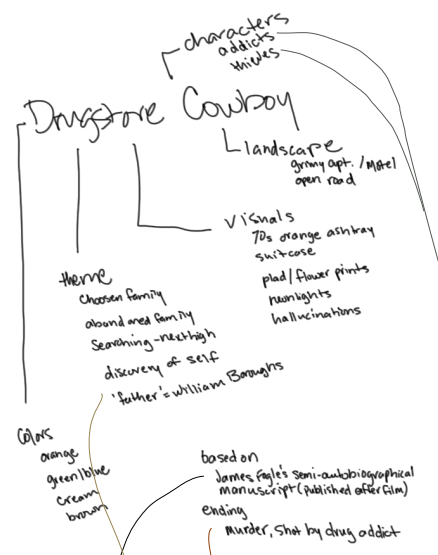 characters
addicts
thieves
Drugstore Cowboy
landscape
grimy apt. / Motel
open road
Visuals
70s orange ashtray
suitcase
plad/flower prints
neonlights
hallucinations
theme
choosen family
abandoned family
searching-nexthigh
discovery of self
'father' = William Boroughs
Colors
orange
green/blue
cream
brown
based on
James Fogle's semi-autobiographical
manuscript (published after film)
ending
murder, shot by drug addict